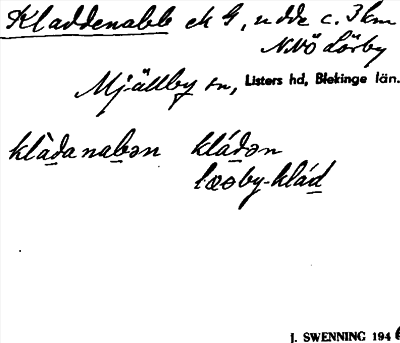 Kladdenabb ek G, udde c. 3 km
NNÖ Lörby
Mjällby sn, Listers hd, Blekinge län.
klàdanabən kládən
læɵby-klád
J. SWENNING 194